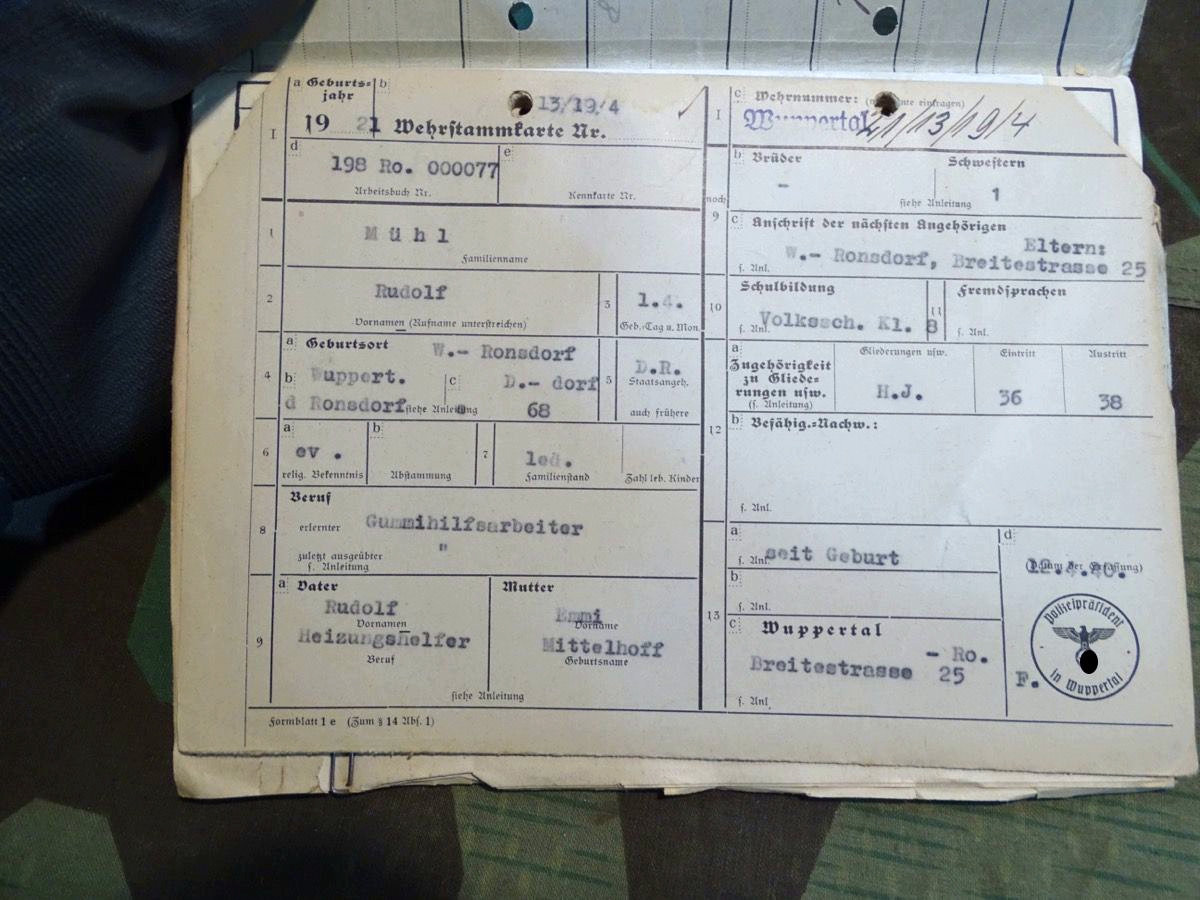 a Geburts= jahr b 13/19/4
1921 Wehrstammkarte Nr.
I
d 198 Ro. 000077 e
Arbeitsbuch Nr. Kennkarte Nr.
1 Mühl
Familienname
2 Rudolf 3 1.4.
Vornamen (Rufname unterstreichen) Geb.-Tag u. Mon.
4 a Geburtsort W.- Ronsdorf 5 D.R.
Staatsangeh.
b Wuppert. c D.- dorf
d Ronsdorf siehe Anleitung 68 auch frühere
6 a ev. b 7 led.
relig. Bekenntnis Abstammung Familienstand Zahl leb. Kinder
8 Beruf
erlernter Gummihilfsarbeiter
zuletzt ausgeübter "
s. Anleitung
9 a Vater Mutter
Rudolf Emmi
Vornamen Vorname
Heizungshelfer Mittelhoff
Beruf Geburtsname
siehe Anleitung
Formblatt 1 e (Zum § 14 Abs. 1)
I c Wehrnummer:
Wuppertal 21/13/19/4
noch 9
b Brüder Schwestern
- 1
siehe Anleitung
c Anschrift der nächsten Angehörigen
Eltern:
s. Anl. W.- Ronsdorf, Breitestrasse 25
10 Schulbildung 11 Fremdsprachen
s. Anl. Volkssch. Kl. 8 s. Anl.
12 a Zugehörigkeit zu Gliede= rungen usw. (s. Anleitung)
Gliederungen usw. Eintritt Austritt
H.J. 36 38
b Befähig.=Nachw.:
s. Anl.
13 a s. Anl. seit Geburt d
b
s. Anl.
c Wuppertal
- Ro.
Breitestrasse 25
s. Anl.
F.
Polizeipräsident in Wuppertal